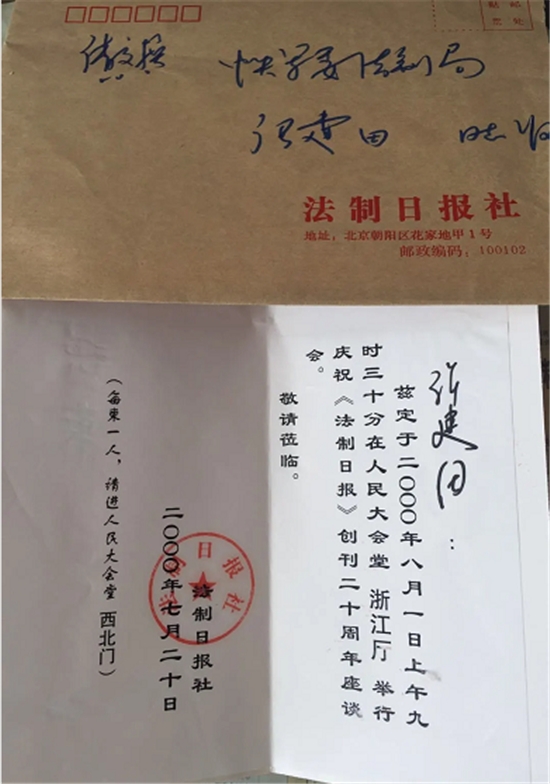 贴 邮
票 处
军委法制局
张建田 同志收
法制日报社
地址：北京朝阳区花家地甲1号
邮政编码：100102
张建田：
兹定于二○○○年八月一日上午九
时三十分在人民大会堂 浙江厅 举行
庆祝《法制日报》创刊二十周年座谈
会。
敬请莅临。
法制日报社
二○○○年七月二十日
法制日报社
（每柬一人，请进人民大会堂 西北门）